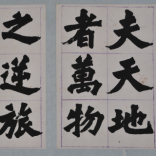 夫天地
者萬物
之逆旅